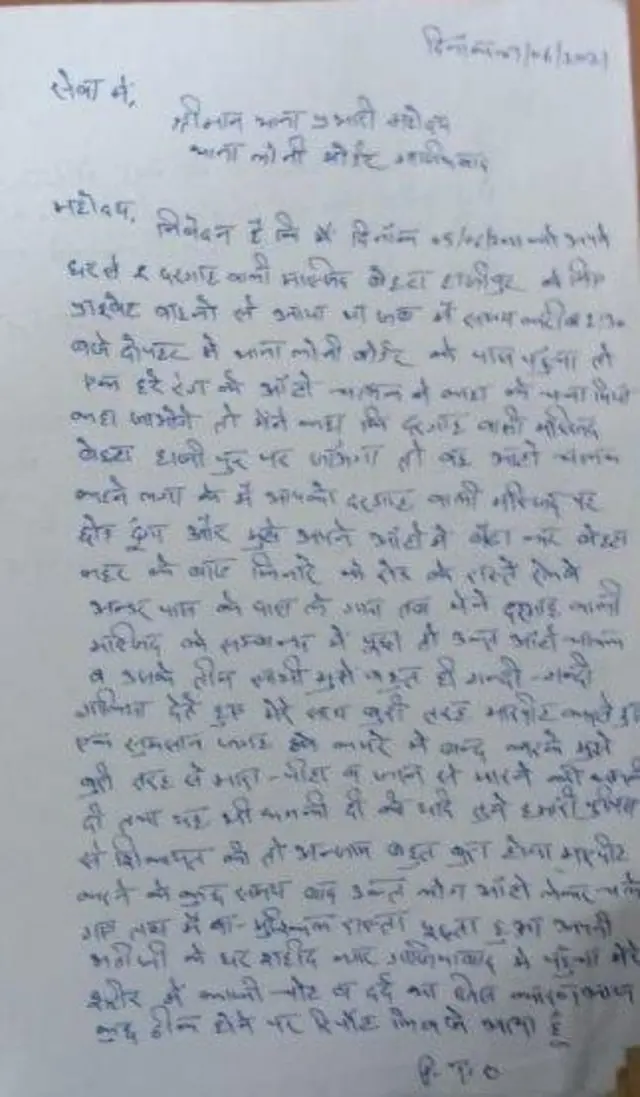 दिनांक 07/06/2021
सेवा में,
श्रीमान थाना प्रभारी महोदय
थाना लोनी बोर्डर गाजियाबाद
महोदय,
निवेदन है कि मैं दिनाँक 05/06/2021 को अपने
घर से दरगाह वाली मस्जिद बेहटा हाजीपुर के लिए
प्राइवेट वाहनो से आया था जब मैं समय करीब 2:30
बजे दोपहर में थाना लोनी बोर्डर के पास पहुंचा तो
एक हरे रंग के ऑटो चालक ने कहा के चचा मियां
कहा जाओगे तो मैंने कहा कि दरगाह वाली मस्जिद
बेहटा हाजी पुर पर जाऊंगा तो वह ऑटो चालक
कहने लगा के मैं आपको दरगाह वाली मस्जिद पर
छोड़ दूंगा और मुझे अपने ऑटो में बैठा कर बेहटा
नहर के बाए किनारे की रोड के रास्ते रेलवे
अन्डर पास के पास ले गया तब मैंने दरगाह वाली
मस्जिद के सम्बन्ध में पूछा तो उक्त ऑटो चालक
व उसके तीन साथी मुझे बहुत ही गन्दी-गन्दी
गालियां देते हुए मेरे साथ बुरी तरह मारपीट करते हुए
एक सुनसान जगह कमरे में बन्द करके मुझे
बुरी तरह से मारा-पीटा व जान से मारने की धमकी
दी तथा यह भी धमकी दी के यदि तूने हमारी पुलिस
से शिकायत की तो अन्जाम बहुत बुरा होगा मारपीट
करने के कुछ समय बाद उक्त लोग ऑटो लेकर चले
गए तब मैं बा-मुश्किल रास्ता पूछता हुआ अपनी
भतीजी के घर शहीद नगर गाजियाबाद में पहुंचा मेरे
शरीर में काफी चोट व दर्द था
कुछ ठीक होने पर रिपोर्ट लिखाने आया हूँ
P.T.O